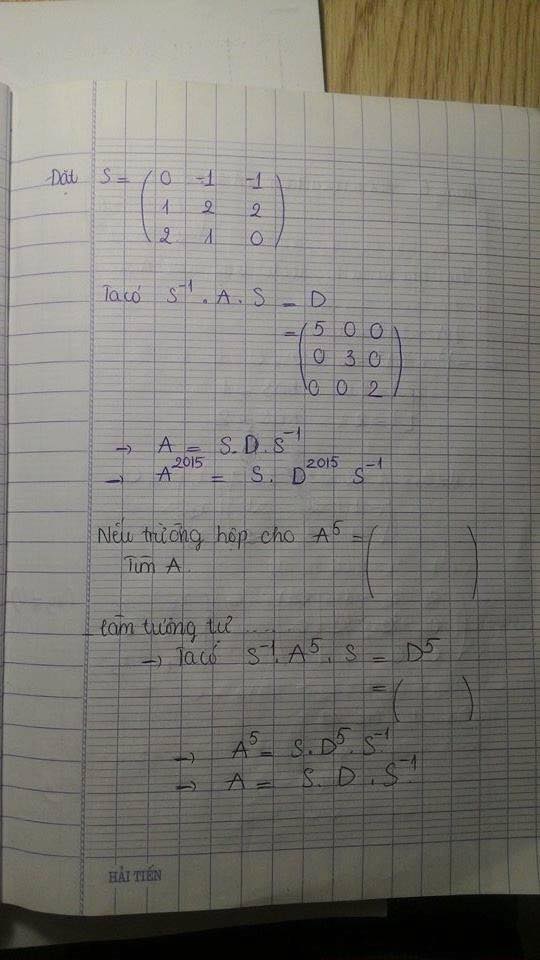 Đặt S = ( 0 -1 -1
1 2 2
2 1 0 )
Ta có S⁻¹ . A . S = D
= ( 5 0 0
0 3 0
0 0 2 )
→ A = S. D. S⁻¹
→ A²⁰¹⁵ = S. D²⁰¹⁵ S⁻¹
Nếu trường hợp cho A⁵ = ( )
Tìm A.
làm tương tự ......
→ Ta có S⁻¹. A⁵. S = D⁵
= ( )
→ A⁵ = S. D⁵. S⁻¹
→ A = S. D. S⁻¹.
HẢI TIẾN